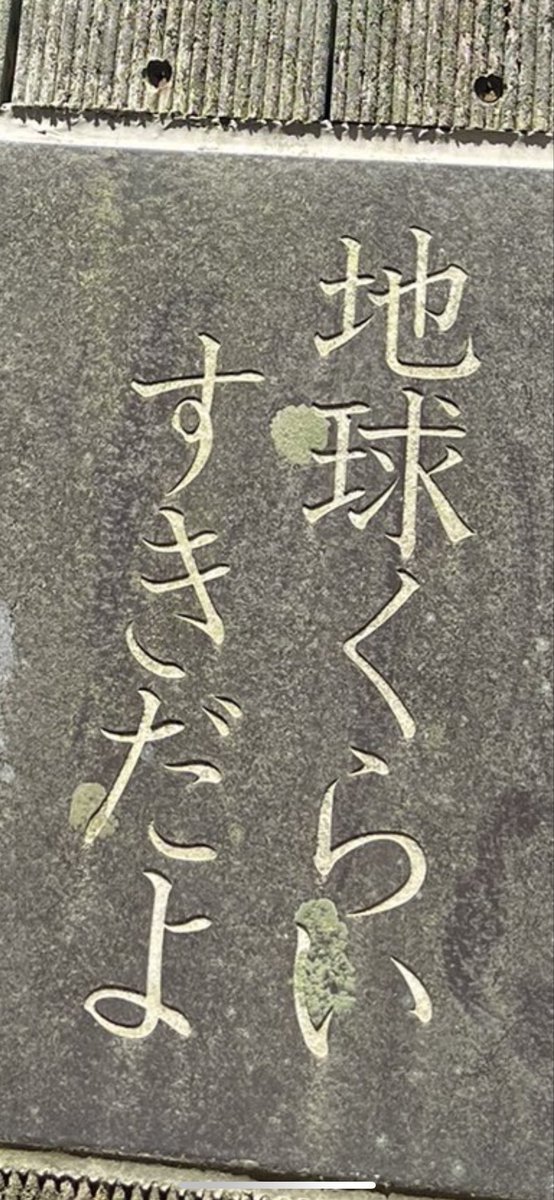 地球くらい
すきだよ